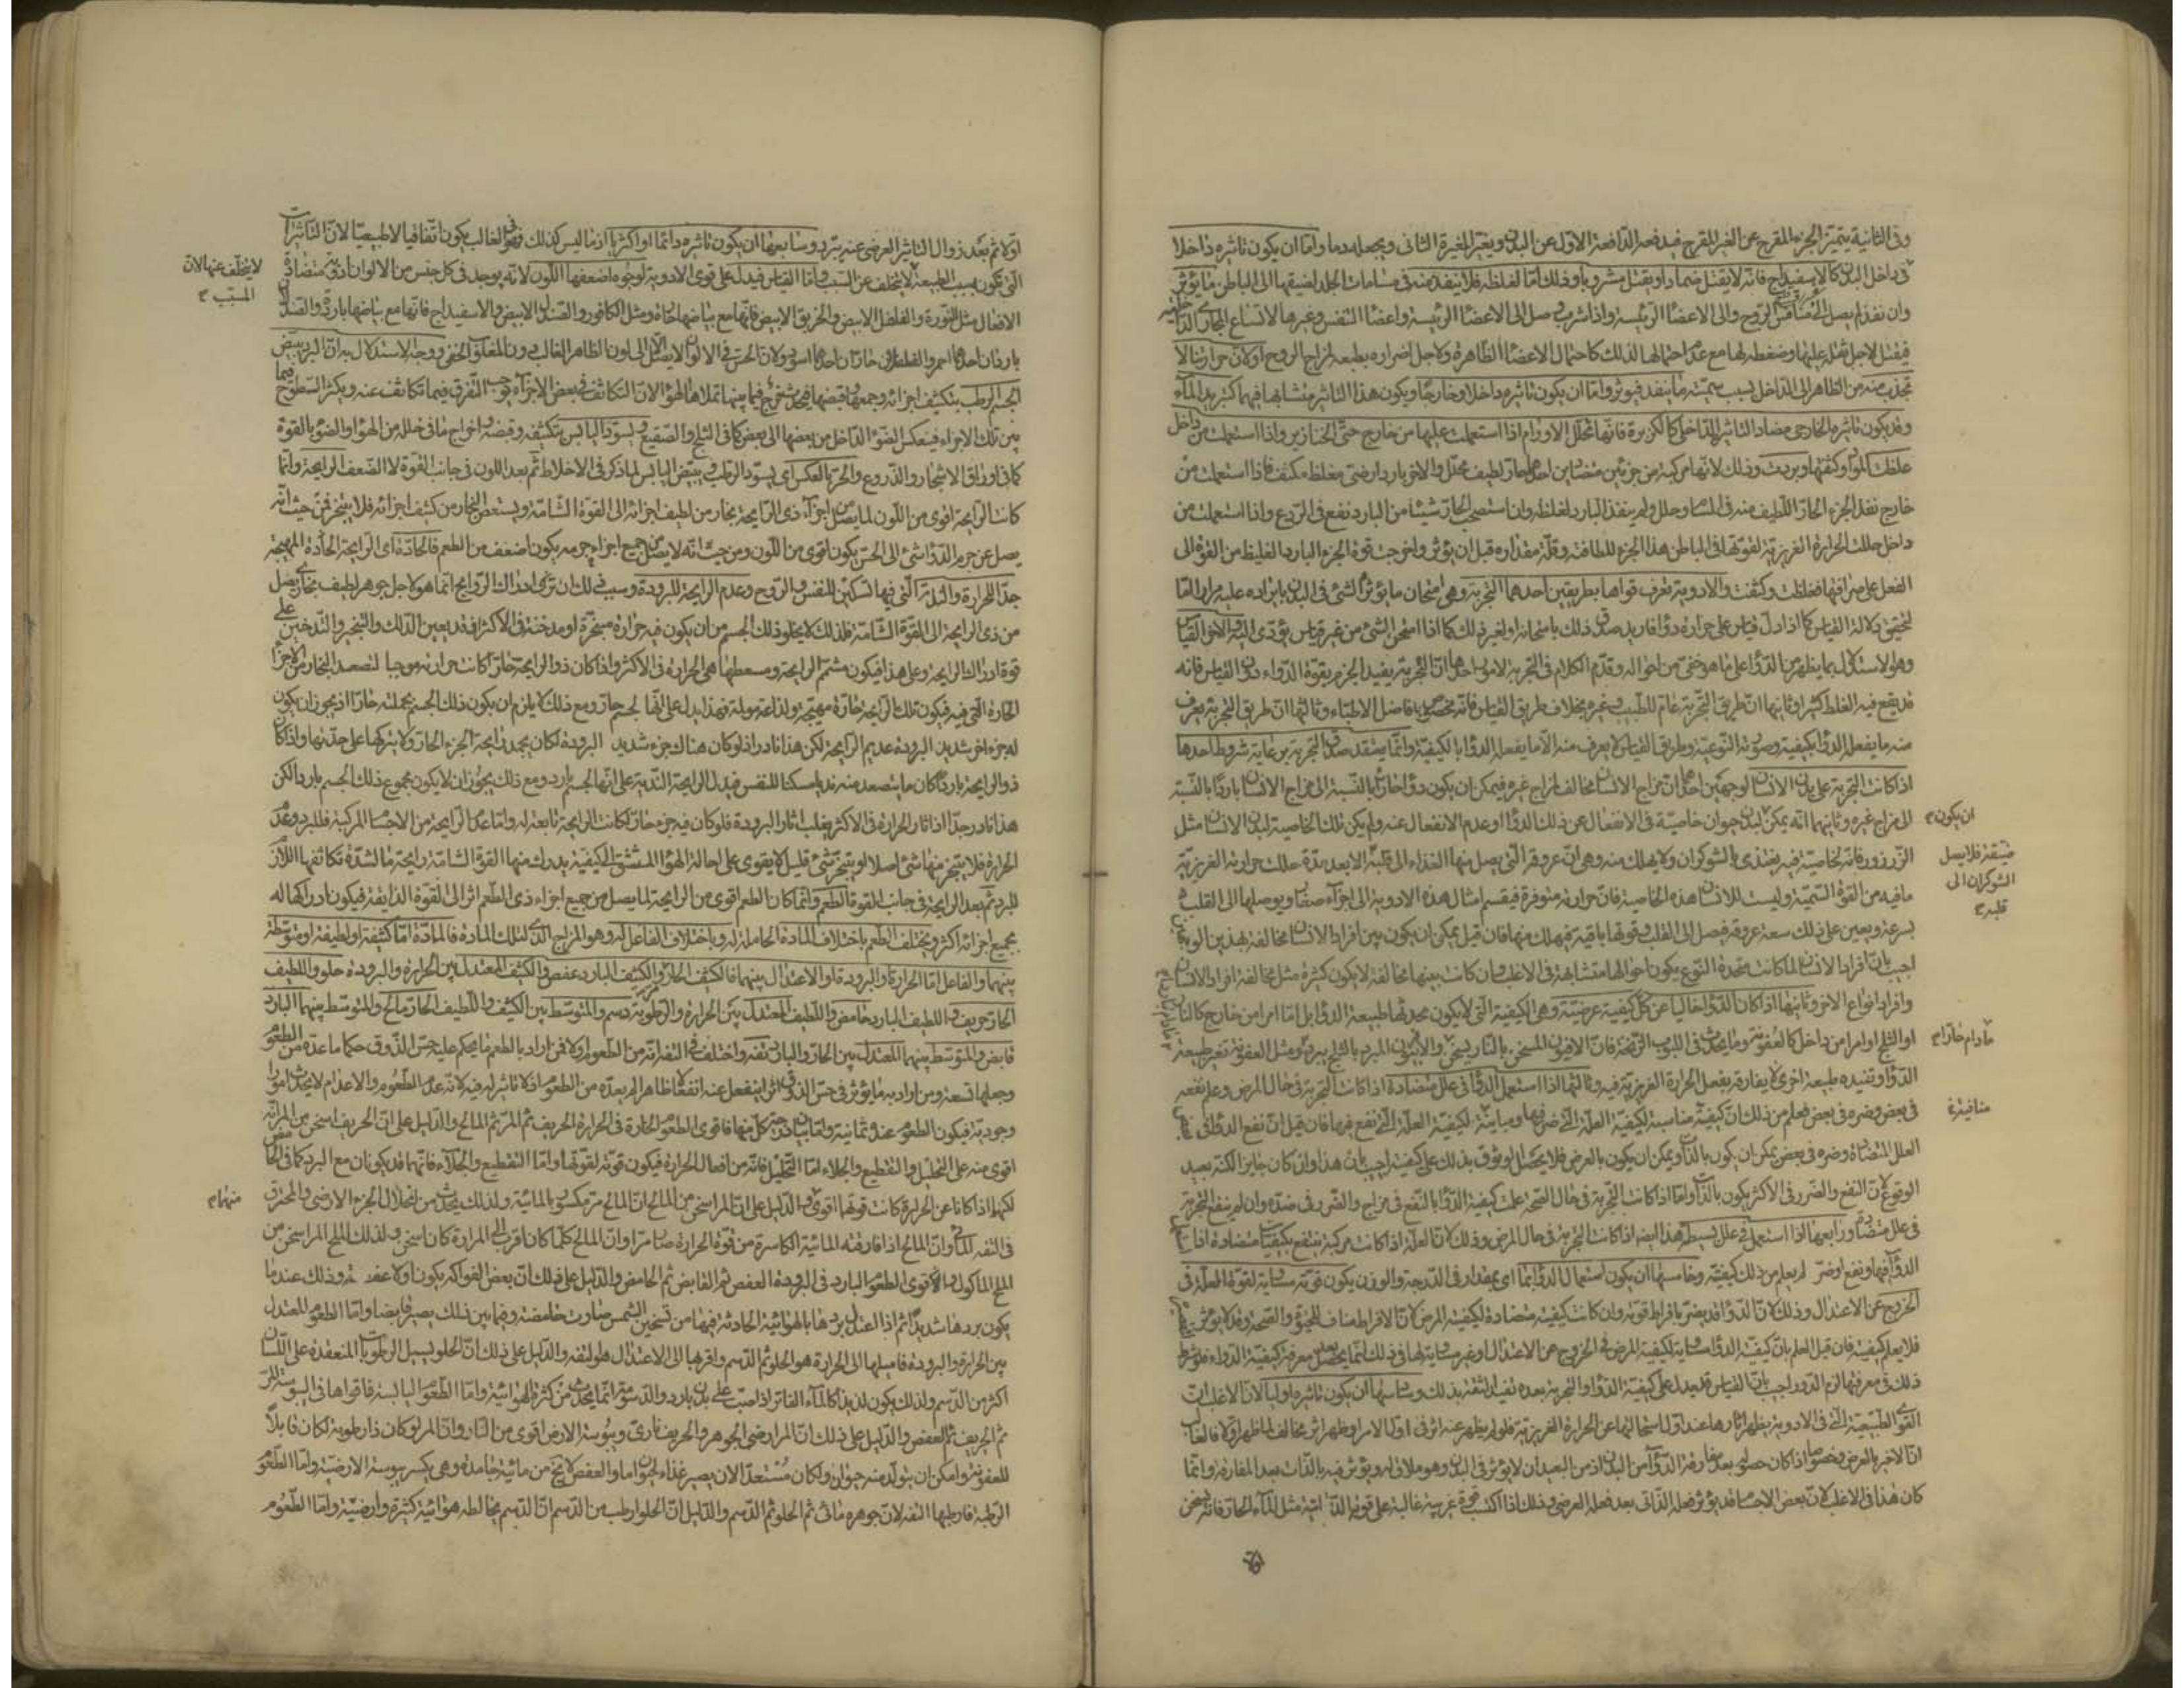 وفى الثانية يتميز الجزء المقرح عن الغير المقرح فيدفعه الدافعة الاول عن البدن ويغير المغيرة الثانى ويجعله دما واما ان يكون تاثيره داخلا
فى داخل البدن كالاسفيداج فانه لا يقتل ضمادا ويقتل مشروبا وذلك اما لغلظه فلا ينفذ منه فى مسامات الجلد لضيقها الى الباطن ما يؤثر
وان نفذ لم يصل الى منافس الروح والى الاعضا الرئيسة واذا شرب وصل الى الاعضا الرئيسة واعضا التنفس وغيرها لاتساع المجارى
فيقتل لاجل ثقله عليها وضغطه لها مع عدم احتمالها لذلك كاحتمال الاعضا الظاهرة ولاجل اضراره بطبعه لمزاج الروح او لان حرارتنا لا
تجذب منه من الظاهر الى الداخل لسبب سميته ما ينفذ فيؤثر واما ان يكون تاثيره داخلا وخارجا ويكون هذا التاثير متشابها فيهما كتبريد الماء
وقد يكون تاثيره الخارجى مضاد التاثير الداخلى كالكزبرة فانها تحلل الاورام اذا استعملت عليها من خارج حتى الخنازير واذا استعملت من داخل
غلظت المواد وكثفتها وبردت وذلك لانها مركبة من جزئين متضادين احدهما حار لطيف محلل والاخر بارد ارضى مغلظ مكثف فاذا استعملت من
خارج نفذ الجزء الحار اللطيف منه فى المسام وحلل ولم ينفذ البارد لغلظه وان استصحب الحار شيئا من البارد نفع فى الردع واذا استعملت من
داخل حللت الحرارة الغريزية لقوتها فى الباطن هذا الجزء للطافته وقلة مقداره قبل ان يؤثر واخرجت قوة الجزء البارد الغليظ من القوة الى
الفعل على صرافتها فغلظت وكثفت والادوية تعرف قواها بطريقين احدهما التجربة وهى امتحان ما يؤثر الشئ فى البدن بايراده عليه مرارا اما
لتحقيق دلالة القياس كما اذا دل قياس على حرارة دواء فاريد صدق ذلك بامتحانه او لغير ذلك كما اذا امتحن الشئ من غير قياس يؤدى اليه والاخر القياس
وهو الاستدلال بما يظهر من الدواء على ما هو خفى من احواله وقدم الكلام فى التجربة لامور احدها ان التجربة يفيد الجزم بقوة الدواء دون القياس فانه
قد يقع فيه الغلط كثيرا وثانيها ان طريق التجربة عام للطبيب وغيره بخلاف طريق القياس فانه مخصوص بافاضل الاطباء وثالثها ان طريق التجربة يعرف
منه ما يفعل الدواء بكيفيته وصورته النوعية وطريق القياس لا يعرف منه الا ما يفعل الدواء بالكيفية وانما يعتقد صدق التجربة برعاية شروط احدها
اذا كانت التجربة على بدن الانسان لوجهين احدهما ان مزاج الانسان مخالف لمزاج غيره فيمكن ان يكون دواء حارا بالنسبة الى مزاج الانسان باردا بالنسبة
الى مزاج غيره وثانيهما انه يمكن لبدن حيوان خاصية فى الانفعال عن ذلك الدواء او عدم الانفعال عنه ولم يكن تلك الخاصية لبدن الانسان مثل
ان يكون
الزرزور فانه لخاصية فيه يغتذى بالشوكران ولا يهلك منه وهى ان عروقه التى يصل منها الغذاء الى قلبه الا بعد مدة حللت حرارته الغريزية
ضيقة فلا يصل
الشوكران الى
قلبه
ما فيه من القوة السمية وليست للانسان هذه الخاصية فان حرارته متوفرة فيقسم امثال هذه الادوية الى اجزاء صغار ويوصلها الى القلب
بسرعة ويعين على ذلك سعة عروقه فيصل الى القلب وقوتها باقية فيهلك منها فان قيل يمكن ان يكون بين افراد الانسان مخالفة بهذين الوجهين
اجيب بان افراد الانسان لما كانت متحدة النوع يكون احوالها متشابهة فى الاغلب وان كانت بينها مخالفة لا يكون كثيرة مثل مخالفة افراد الانسان
وافراد انواع الاخر وثانيها اذا كان الدواء خاليا عن كل كيفية عرضية وهى الكيفية التى لا يكون محدثها طبيعة الدواء بل اما امرا من خارج كالنار
او الثلج او امرا من داخل كالعفونة وما يحدث فى اللبوب الزنخة فان الافيون المسخن بالنار يسخن والافيون المبرد بالثلج يبرد ومثل العفونة تغير طبيعة
ما دام حارا
الدواء وتفيده طبيعة اخرى لا يفارقه بفعل الحرارة الغريزية فيه وثالثها اذا استعمل الدواء فى علل متضادة اذا كانت التجربة فى حال المرض وعلم نفعه
فى بعض وضره فى بعض فيعلم من ذلك ان كيفيته مناسبة لكيفية العلة التى ضر فيها ومباينة لكيفية العلة التى نفع فيها فان قيل ان نفع الدواء فى
منافية
العلل المتضادة وضره فى بعض يمكن ان يكون بالذات ويمكن ان يكون بالعرض فلا يحصل الوثوق بذلك على كيفيته اجيب بان هذا وان كان جايزا لكنه بعيد
الوقوع لان النفع والضرر فى الاكثر يكون بالذات واما اذا كانت التجربة فى حال الصحة علمت كيفية الدواء بالنفع فى مزاج والضرر فى ضده وان لم ينفع التجربة
فى علل متضادة ورابعها اذا استعمل فى علل بسيطة هذا ايضا اذا كانت التجربة فى حال المرض وذلك لان العلة اذا كانت مركبة ينتفع بكيفيات متضادة اذا
الدواء فيها ونفع او ضر لم يعلم من ذلك كيفيته وخامسها ان يكون استعمال الدواء بما اى بمقدار فى الدرجة والوزن يكون قوته مساوية لقوة العلة فى
الخروج عن الاعتدال وذلك لان الدواء قد يضر بافراط قوته وان كانت كيفيته متضادة لكيفية المرض لان الافراط مناف للحيوة والصحة وقد لا يؤثر
فلا يعلم كيفيته فان قيل العلم بان كيفية الدواء مساوية لكيفية المرض فى الخروج عن الاعتدال او غير مساوية لها فى ذلك انما يحصل بعد معرفة كيفية الدواء فلو شرط
ذلك فى معرفتها لزم الدور اجيب بان القياس قد يدل على كيفية الدواء والتجربة بعده تفيد الثقة بذلك وسادسها ان يكون تاثيره اوليا لان الاغلب ان
القوى الطبيعية التى فى الادوية يظهر اثارها عند اول استحالتها عن الحرارة الغريزية فلو لم يظهر عنه اثر فى اول الامر او ظهر اثر مخالف لما ظهر اولا فالغالب
ان الاخير بالعرض وخصوصا اذا كان حصوله بعد مفارقة الدواء من البدن اذ من البعيد ان لا يؤثر فى البدن وهو ملاق له ويؤثر فيه بالذات بعد المفارقة وانما
كان هذا فى الاغلب لان بعض الاجسام قد يؤثر فعله الذاتى بعد فعله العرضى وذلك اذا اكتسب قوة غريبة غالبة على قوته الذاتية مثل الماء الحار فانه يسخن
اولا ثم بعد زوال التاثير العرضى عنه يبرد وسابعها ان يكون تاثيره دائما او اكثريا اذ ما ليس كذلك فهو فى الغالب يكون اتفاقيا لا طبيعيا لان التاثيرات
التى تكون بسبب الطبيعة لا يتخلف عن السبب واما القياس فيدل على قوى الادوية لوجوه اضعفها اللون لانه يوجد فى كل جنس من الالوان ادوية متضادة
لا يتخلف عنها لان
المسبب
الافعال مثل النورة والفلفل الابيض والخربق الابيض فانها مع بياضها حارة ومثل الكافور والصندل الابيض والاسفيداج فانها مع بياضها باردة والصندلان
باردان احدهما احمر والفلفلان حاران احدهما اسود ولان الحس فى الالوان لا يصل الا الى لون الظاهر الغالب دون المغلوب الخفى ووجه الاستدلال به ان البرد يبيض
الجسم الرطب بتكثيف اجزائه وجمعها وقبضها فيحدث فرج فيما بينها تملاها الهواء لان التكاثف فى بعض الاجزاء يوجب التفرق فيما تكاثف عنه ويكثر السطوح فيما
بين تلك الاجزاء فينعكس الضوء الداخل من بعضها الى بعض كما فى الثلج والصقيع ويسود اليابس بتكثيفه وقبضه واخراج ما فى خلله من الهواء والضوء بالقوة
كما فى اوراق الاشجار والزروع والحر بالعكس اى يسود الرطب ويبيض اليابس لما ذكر فى الاخلاط ثم بعد اللون فى جانب القوة لا الضعف الرايحة وانما
كانت الرايحة اقوى من اللون لما يصل من اجزاء ذى الرايحة بخار من لطيف اجزائه الى القوة الشامة ويستعصى البخار من كثيف اجزائه فلا يتبخر فمن حيث انه
يصل عن جرم الدواء شئ الى الحس يكون اقوى من اللون ومن حيث انه لا يصل من جميع اجزاء جرمه يكون اضعف من الطعم فالحادة اى الرايحة الحادة المهيجة
جدا للحرارة واللذيذة التى فيها تسكين للنفس والروح وعدم الرايحة للبرودة وسبب ذلك ان ادراك الروايح انما هو لاجل جوهر لطيف بخارى يصل
من ذى الرايحة الى القوة الشامة فلذلك لا يخلو ذلك الجسم من ان يكون فيه حرارة مبخرة او مدخنة فى الاكثر قد يعين الدلك والتبخير والتدخين على
قوة ادراك الرايحة وعلى هذا فيكون مشمم الرايحة ومسعطها هى الحرارة فى الاكثر واذا كان ذو الرايحة حارا كانت حرارته موجبا لتصعد البخار من الاجزاء
الحارة التى فيه فيكون تلك الرايحة حارة مهيجة ولذاعة مولمة فهذا يدل على انها لجسم حار ومع ذلك لا يلزم ان يكون ذلك الجسم بجملته حارا اذ يجوز ان يكون
له جزء اخر شديد البرودة عديم الرايحة لكن هذا نادر اذ لو كان هناك جزء شديد البرودة لكان يخمد رايحة الجزء الحار ولا يتركها على حدتها واذا كان
ذو الرايحة باردا كان ما يتصعد منه نديا مسكنا للنفس فيدل الرايحة الندية على انها لجسم بارد ومع ذلك يجوز ان لا يكون مجموع ذلك الجسم باردا لكن
هذا نادر جدا اذ اثار الحرارة فى الاكثر يغلب اثار البرودة فلو كان فيه جزء حار لكانت الرايحة تابعة له واما عدم الرايحة من الاجسام المركبة فللبرد وعدم
الحرارة فلا يتبخر منها شئ اصلا او يتبخر شئ قليل لا يقوى على احالة الهواء المستنشق الى كيفيته يدرك منها القوة الشامة رايحة ما لشدة تكاثفها اللازم
للبرد ثم بعد الرايحة فى جانب القوة الطعم وانما كان الطعم اقوى من الرايحة لما يصل من جميع اجزاء ذى الطعم اثر الى القوة الذايقة فيكون ادراكها له
بجميع اجزائه اكثر ويختلف الطعم باختلاف المادة الحاملة له وباختلاف الفاعل له وهو المزاج الذى لتلك المادة فالمادة اما كثيفة او لطيفة او متوسطة
بينهما والفاعل اما الحرارة او البرودة او الاعتدال بينهما فالكثيف الحار مر والكثيف البارد عفص والكثيف المعتدل بين الحرارة والبرودة حلو واللطيف
الحار حريف واللطيف البارد حامض واللطيف المعتدل بين الحرارة والرطوبة دسم والمتوسط بين الكثيف واللطيف الحار مالح والمتوسط بينهما البارد
قابض والمتوسط بينهما المعتدل بين الحار والبارد تفه واختلف فى التفه انه من الطعوم او لا فمن اراد بالطعم ما يحكم عليه حس الذوق حكما ما عده من الطعوم
وجعلها تسعة ومن اراد به ما يؤثر فى حس الذوق اثرا ينفعل عنه انفعالا ظاهرا لم يعده من الطعوم اذ لا تاثير له فيه لانه عدم الطعوم والاعدام لا يحدث امورا
وجودية فيكون الطعوم عنده ثمانية واما بيان درجة كل منها فاقوى الطعوم الحارة فى الحرارة الحريف ثم المر ثم المالح والدليل على ان الحريف اسخن من المر انه
اقوى منه على التحليل والتقطيع والجلاء اما التحليل فانه من افعال الحرارة فيكون قوته لقوتها واما التقطيع والجلاء فانهما قد يكونان مع البرد كما فى الحامض
لكنهما اذا كانا عن الحرارة كانت قوتهما اقوى والدليل على ان المر اسخن من المالح ان المالح مر مكسور بالمائية ولذلك يحدث من انحلال الجزء الارضى والمحترق
منهما
فى التفه المائى وان المالح اذا فارقته المائية الكاسرة من قوة الحرارة صار مرا وان المالح كلما كان اقرب الى المرارة كان اسخن ولذلك الملح المر اسخن من
الملح الماكول والاقوى الطعوم البارد فى البرودة العفص ثم القابض ثم الحامض والدليل على ذلك ان بعض الفواكه يكون اولا عفصه وذلك عند ما
يكون بردها شديدا ثم اذا اعتدل بردها بالهوائية الحادثة فيها من تسخين الشمس صارت حامضة وفيما بين ذلك يصير قابضا واما الطعوم المعتدل
بين الحرارة والبرودة فاميلها الى الحرارة هو الحلو ثم الدسم واقربها الى الاعتدال هو التفه والدليل على ذلك ان الحلو يسيل الرطوبات المنعقدة على اللسان
اكثر من الدسم ولذلك يكون لذيذا كالماء الفاتر اذا صب على بدن بارد والدسومة انما يحدث من كثرة الهوائية واما الطعوم اليابسة فاقواها فى اليبوسة المر
ثم الحريف ثم العفص والدليل على ذلك ان المر ارضى الجوهر والحريف نارى ويبوسة الارض اقوى من النار وان المر لو كان ذا رطوبة لكان قابلا
للعفونة وامكن ان يتولد منه حيوان ولكان مستعدا لان يصير غذاء لحيوان ما والعفص لا يخ من مائية جامدة وهى يكسر يبوسة الارضية واما الطعوم
الرطبة فارطبها التفه لان جوهره مائى ثم الحلو ثم الدسم والدليل ان الحلو ارطب من الدسم ان الدسم يخالطه هوائية كثيرة وارضية واما الطعوم